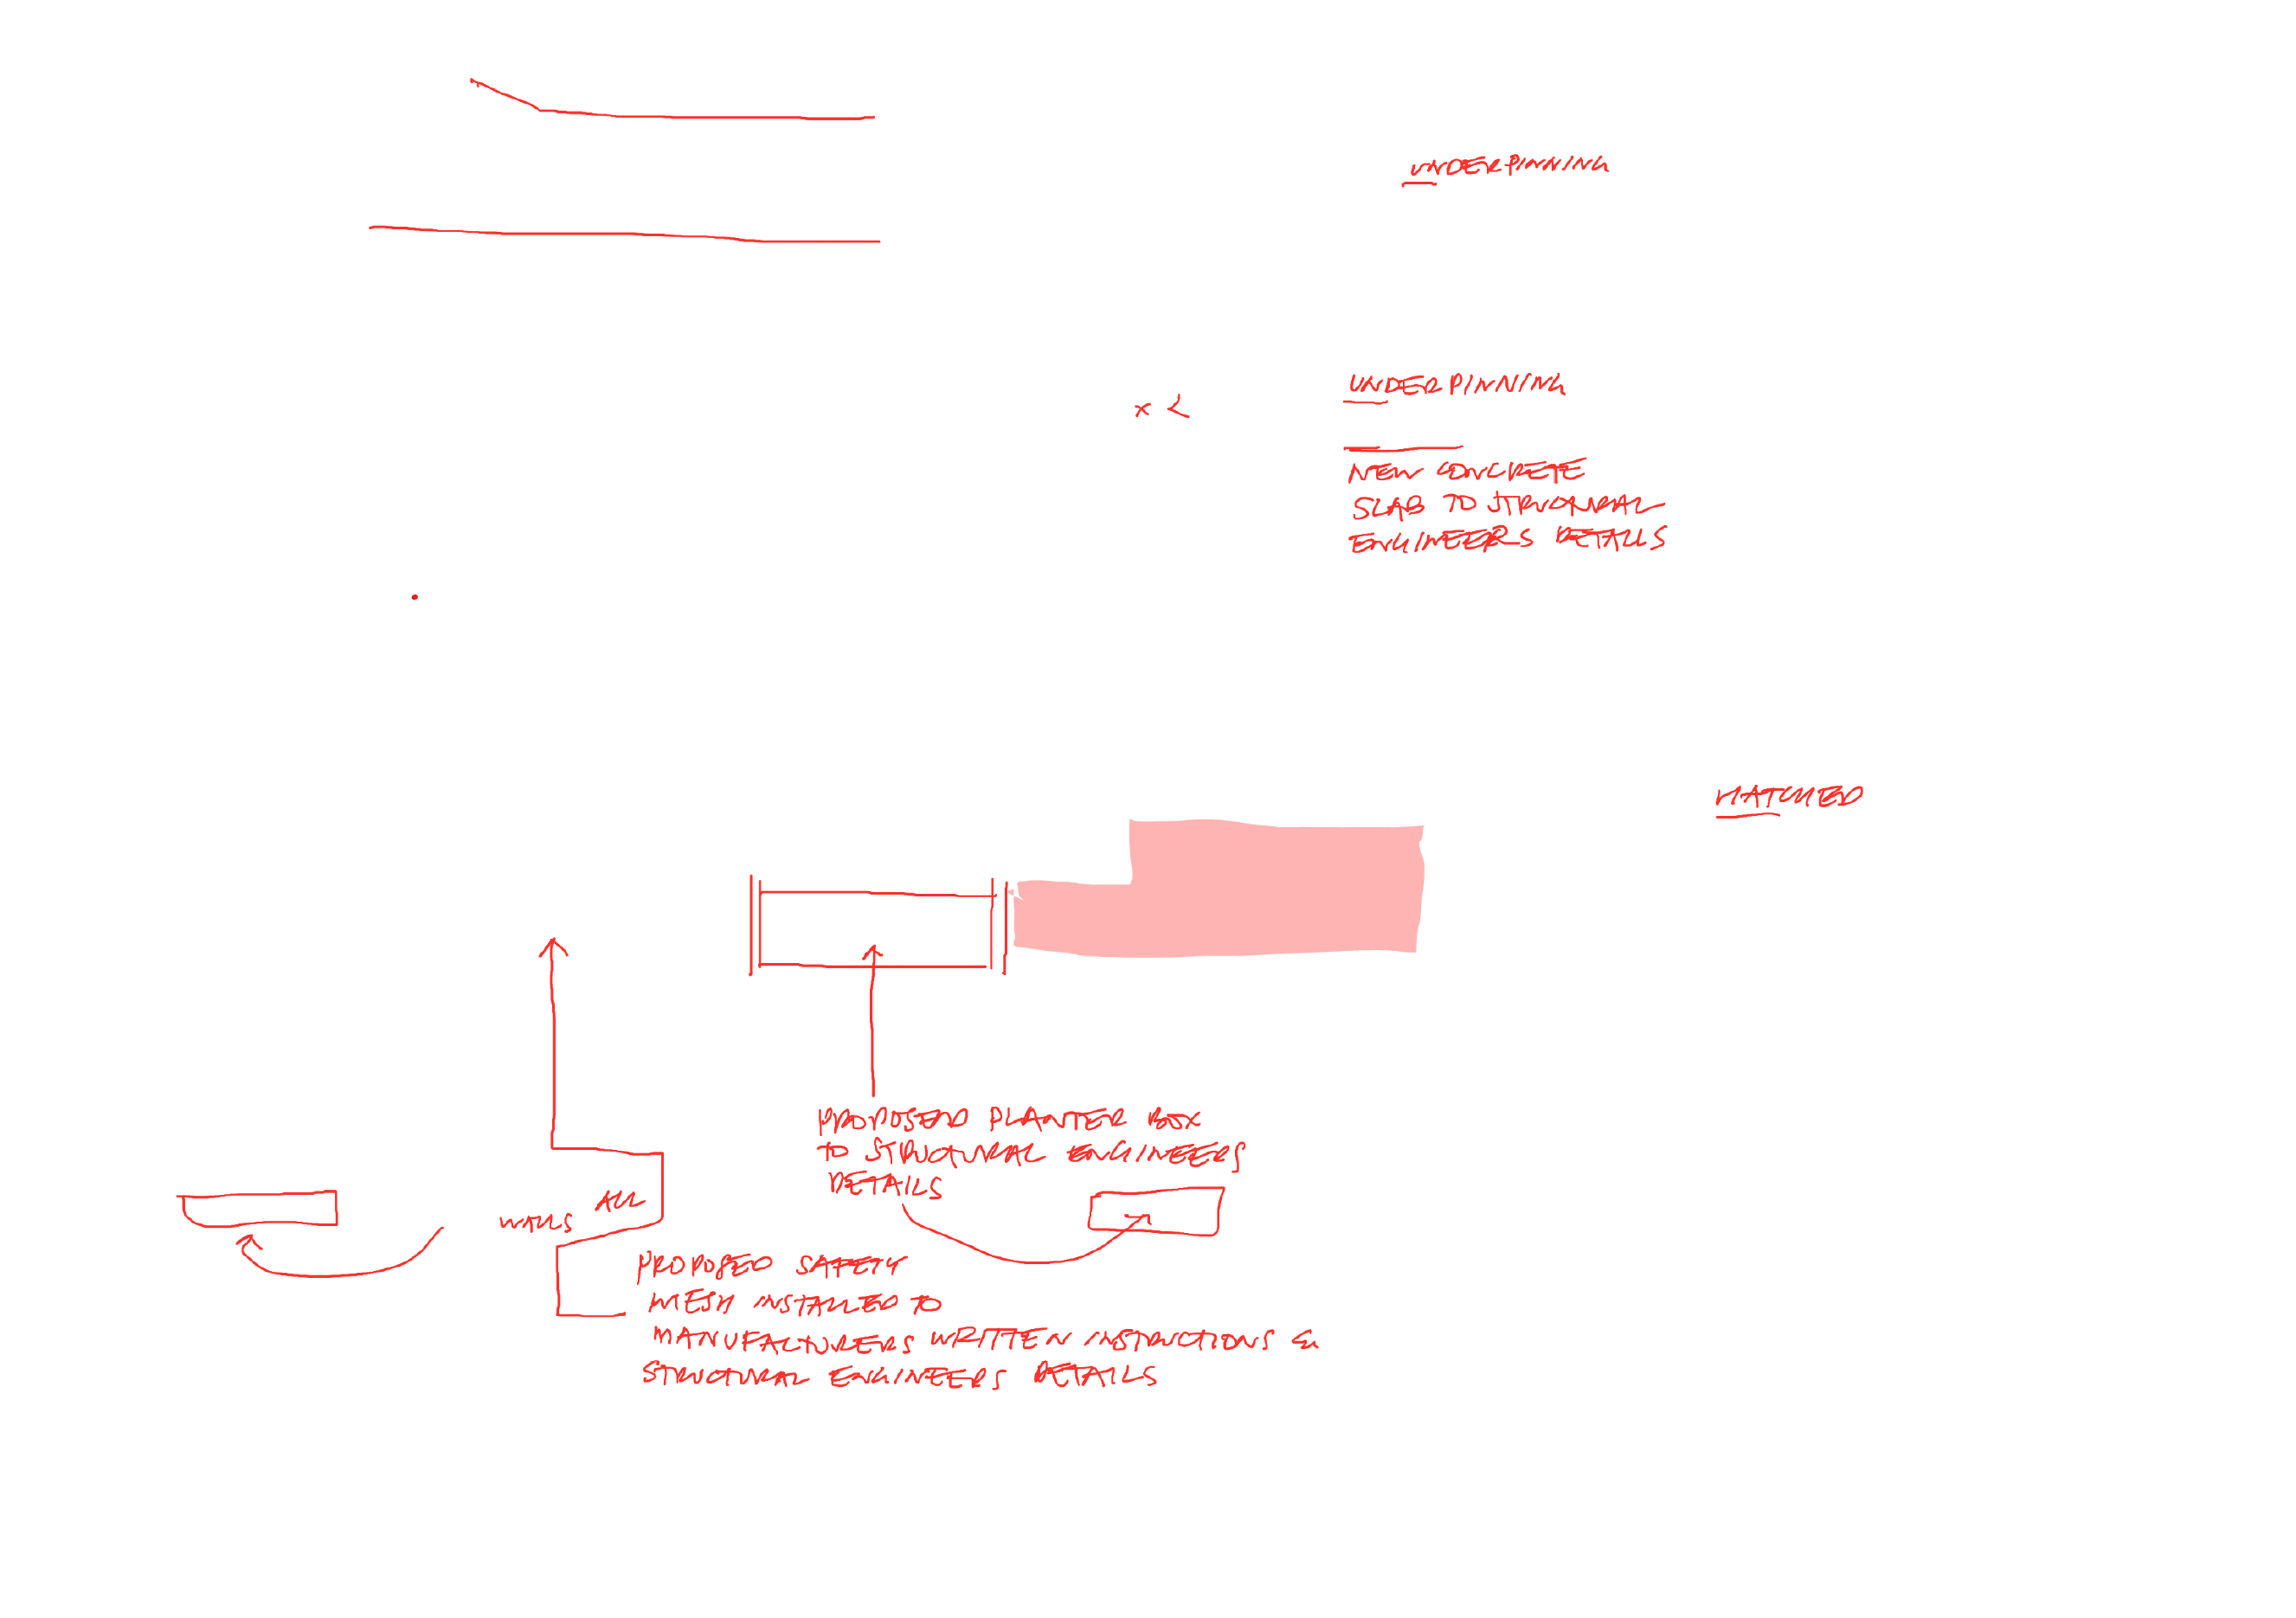 UNDERPINNING
UNDERPINNING
x <
NEW CONCRETE
SLAB TO STRUCTURAL
ENGINEERS DETAILS
PROPOSED PLANTER BOX
TO STRUCTURAL ENGINEERS
DETAILS
ALL
PROPOSED SAFETY
MESH INSTALLED TO
MANUFACTURERS WRITTEN INSTRUCTIONS &
STRUCTURAL ENGINEERS DETAILS